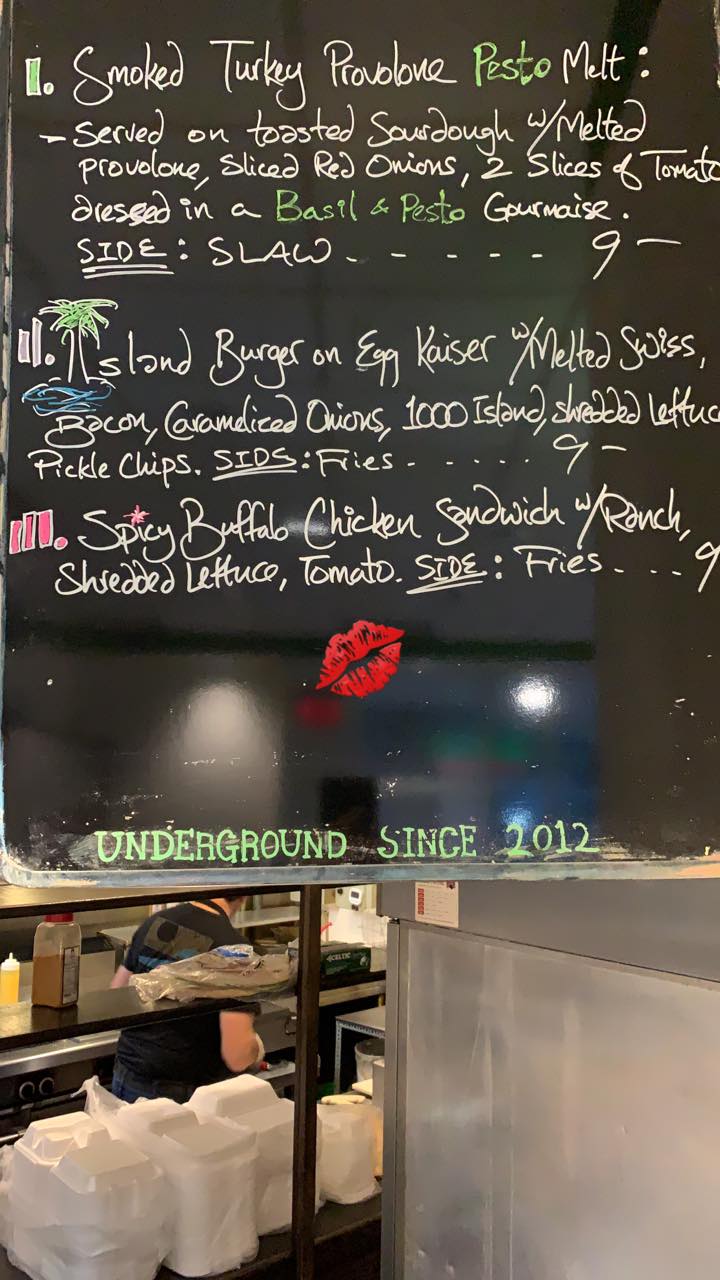 I. Smoked Turkey Provolone Pesto Melt:
- Served on toasted Sourdough w/Melted
provolone, Sliced Red Onions, 2 Slices of Tomato
dressed in a Basil & Pesto Gourmaise.
SIDE: SLAW - - - - - 9 -
II. Island Burger on Egg Kaiser w/Melted Swiss,
Bacon, Caramelized Onions, 1000 Island, Shredded Lettuc
Pickle Chips. SIDS: Fries - - - - - 9 -
III. Spicy Buffalo Chicken Sandwich w/Ranch,
Shredded Lettuce, Tomato. SIDE: Fries - - - - 9
UNDERGROUND SINCE 2012
CELTIC